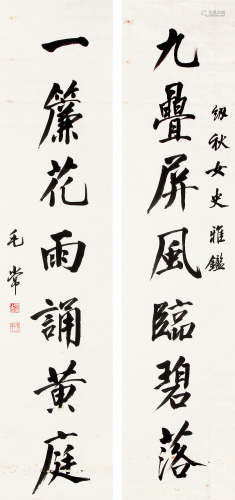 九疊屏風臨碧落
紉秋女史雅鑑
一簾花雨誦黃庭
毛常